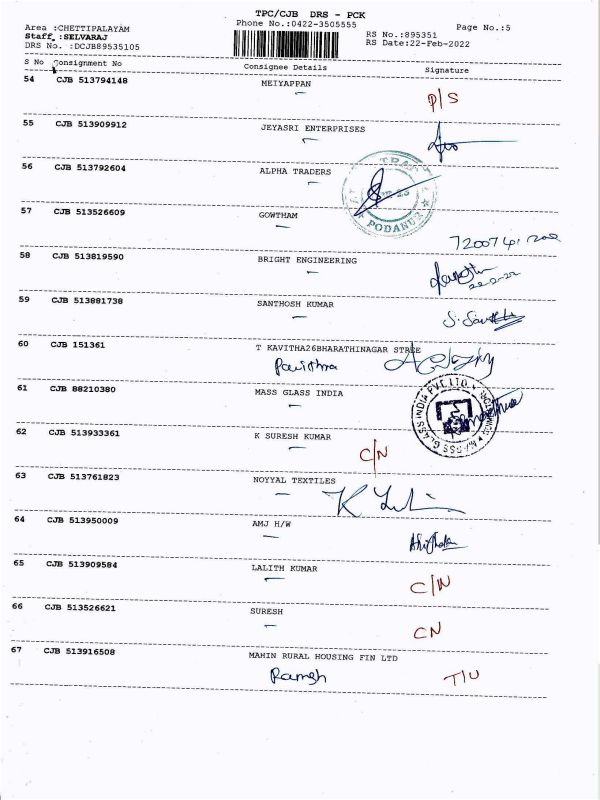 TPC/CJB DRS - PCK
Area :CHETTIPALAYAM Phone No.:0422-3505555 Page No.:5
Staff :SELVARAJ RS No.:895351
DRS No. :DCJB89535105 RS Date:22-Feb-2022
S No Consignment No Consignee Details Signature
54 CJB 513794148 MEIYAPPAN
P/S
55 CJB 513909912 JEYASRI ENTERPRISES
56 CJB 513792604 ALPHA TRADERS
PODANUR
57 CJB 513526609 GOWTHAM
58 CJB 513819590 BRIGHT ENGINEERING
59 CJB 513881738 SANTHOSH KUMAR
60 CJB 151361 T KAVITHA26BHARATHINAGAR STREE
Pavithra
61 CJB 88210380 MASS GLASS INDIA
MASS GLASS INDIA PVT. LTD.
62 CJB 513933361 K SURESH KUMAR
C/N
63 CJB 513761823 NOYYAL TEXTILES
64 CJB 513950009 AMJ H/W
65 CJB 513909584 LALITH KUMAR
C/N
66 CJB 513526621 SURESH
CN
67 CJB 513916508 MAHIN RURAL HOUSING FIN LTD
Ramesh T/U